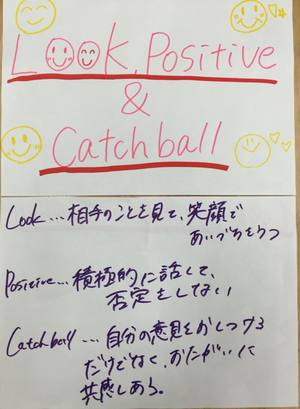 Look, Positive
&
Catch ball
Look…相手のことを見て、笑顔で
あいづちをうつ
Positive…積極的に話して、
否定をしない
Catch ball…自分の意見をおしつける
だけでなく、おたがいに
共感しあう。